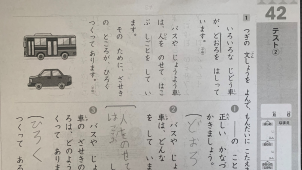 42
テスト②
1 つぎの 文しょうを よんで、もんだいに こたえ
いろいろな じどう車
が、どおろを はしって
います。
バスや じょうよう車
は、人を のせて はこ
ぶ しごとを して い
ます。
そのために、ざせき
の ところが、ひろく
つくって あります。
① の こと
正しい かなづ
かきましょう。
どおろ
② バスや じょ
車は、どんな
を して いま
人をのせて
はこぶ
③ バスや じょ
車の ざせきの
ろは、どのよう
つくって ありま
ひろく
つくって ある